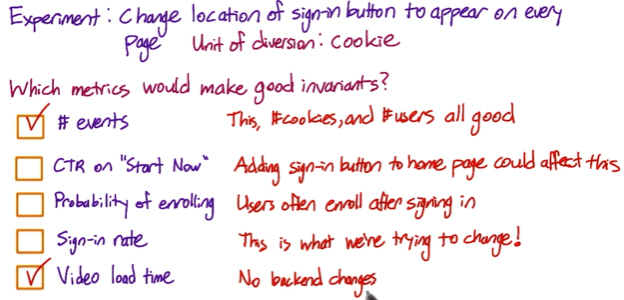 Experiment: Change location of sign-in button to appear on every
page Unit of diversion: cookie
Which metrics would make good invariants?
# events This, #cookies, and #users all good
CTR on "Start Now" Adding sign-in button to home page could affect this
Probability of enrolling Users often enroll after signing in
Sign-in rate This is what we're trying to change!
Video load time No backend changes